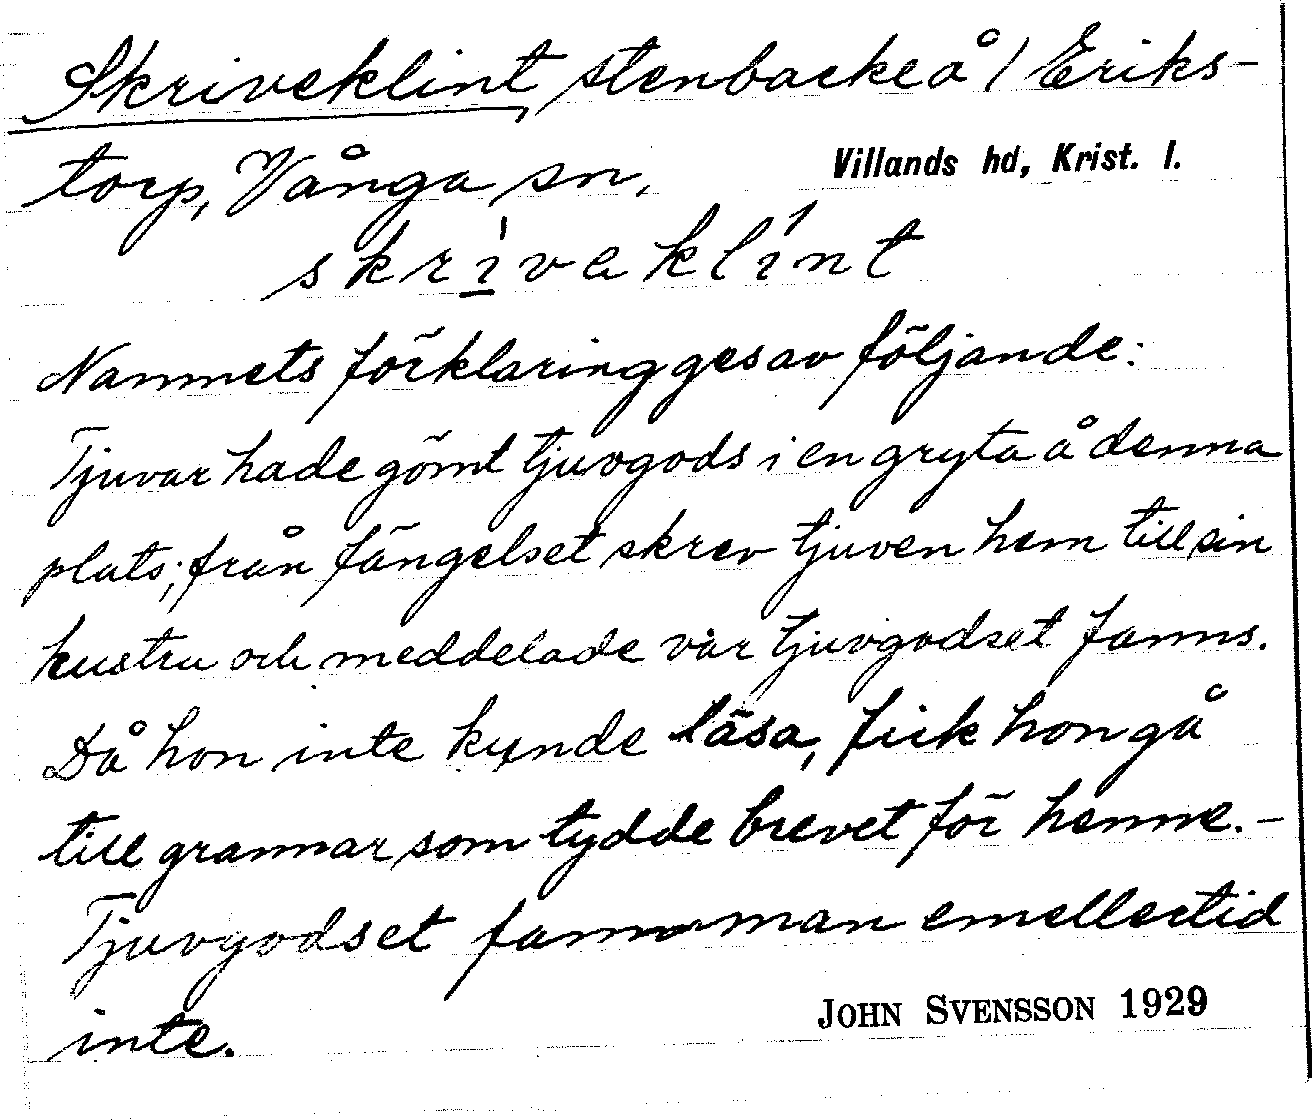 Skriveklint, stenbacke å / Eriks-
torp, Vånga sn. Villands hd, Krist. l.
skrìvaklínt
Namnets förklaring ges av följande:
Tjuvar hade gömt tjuvgods i en gryta å denna
plats; från fängelset skrev tjuven hem till sin
hustru och meddelade var tjuvgodset fanns.
Då hon inte kunde läsa, fick hon gå
till grannar som tydde brevet för henne. -
Tjuvgodset fann man emellertid
inte. JOHN SVENSSON 1929